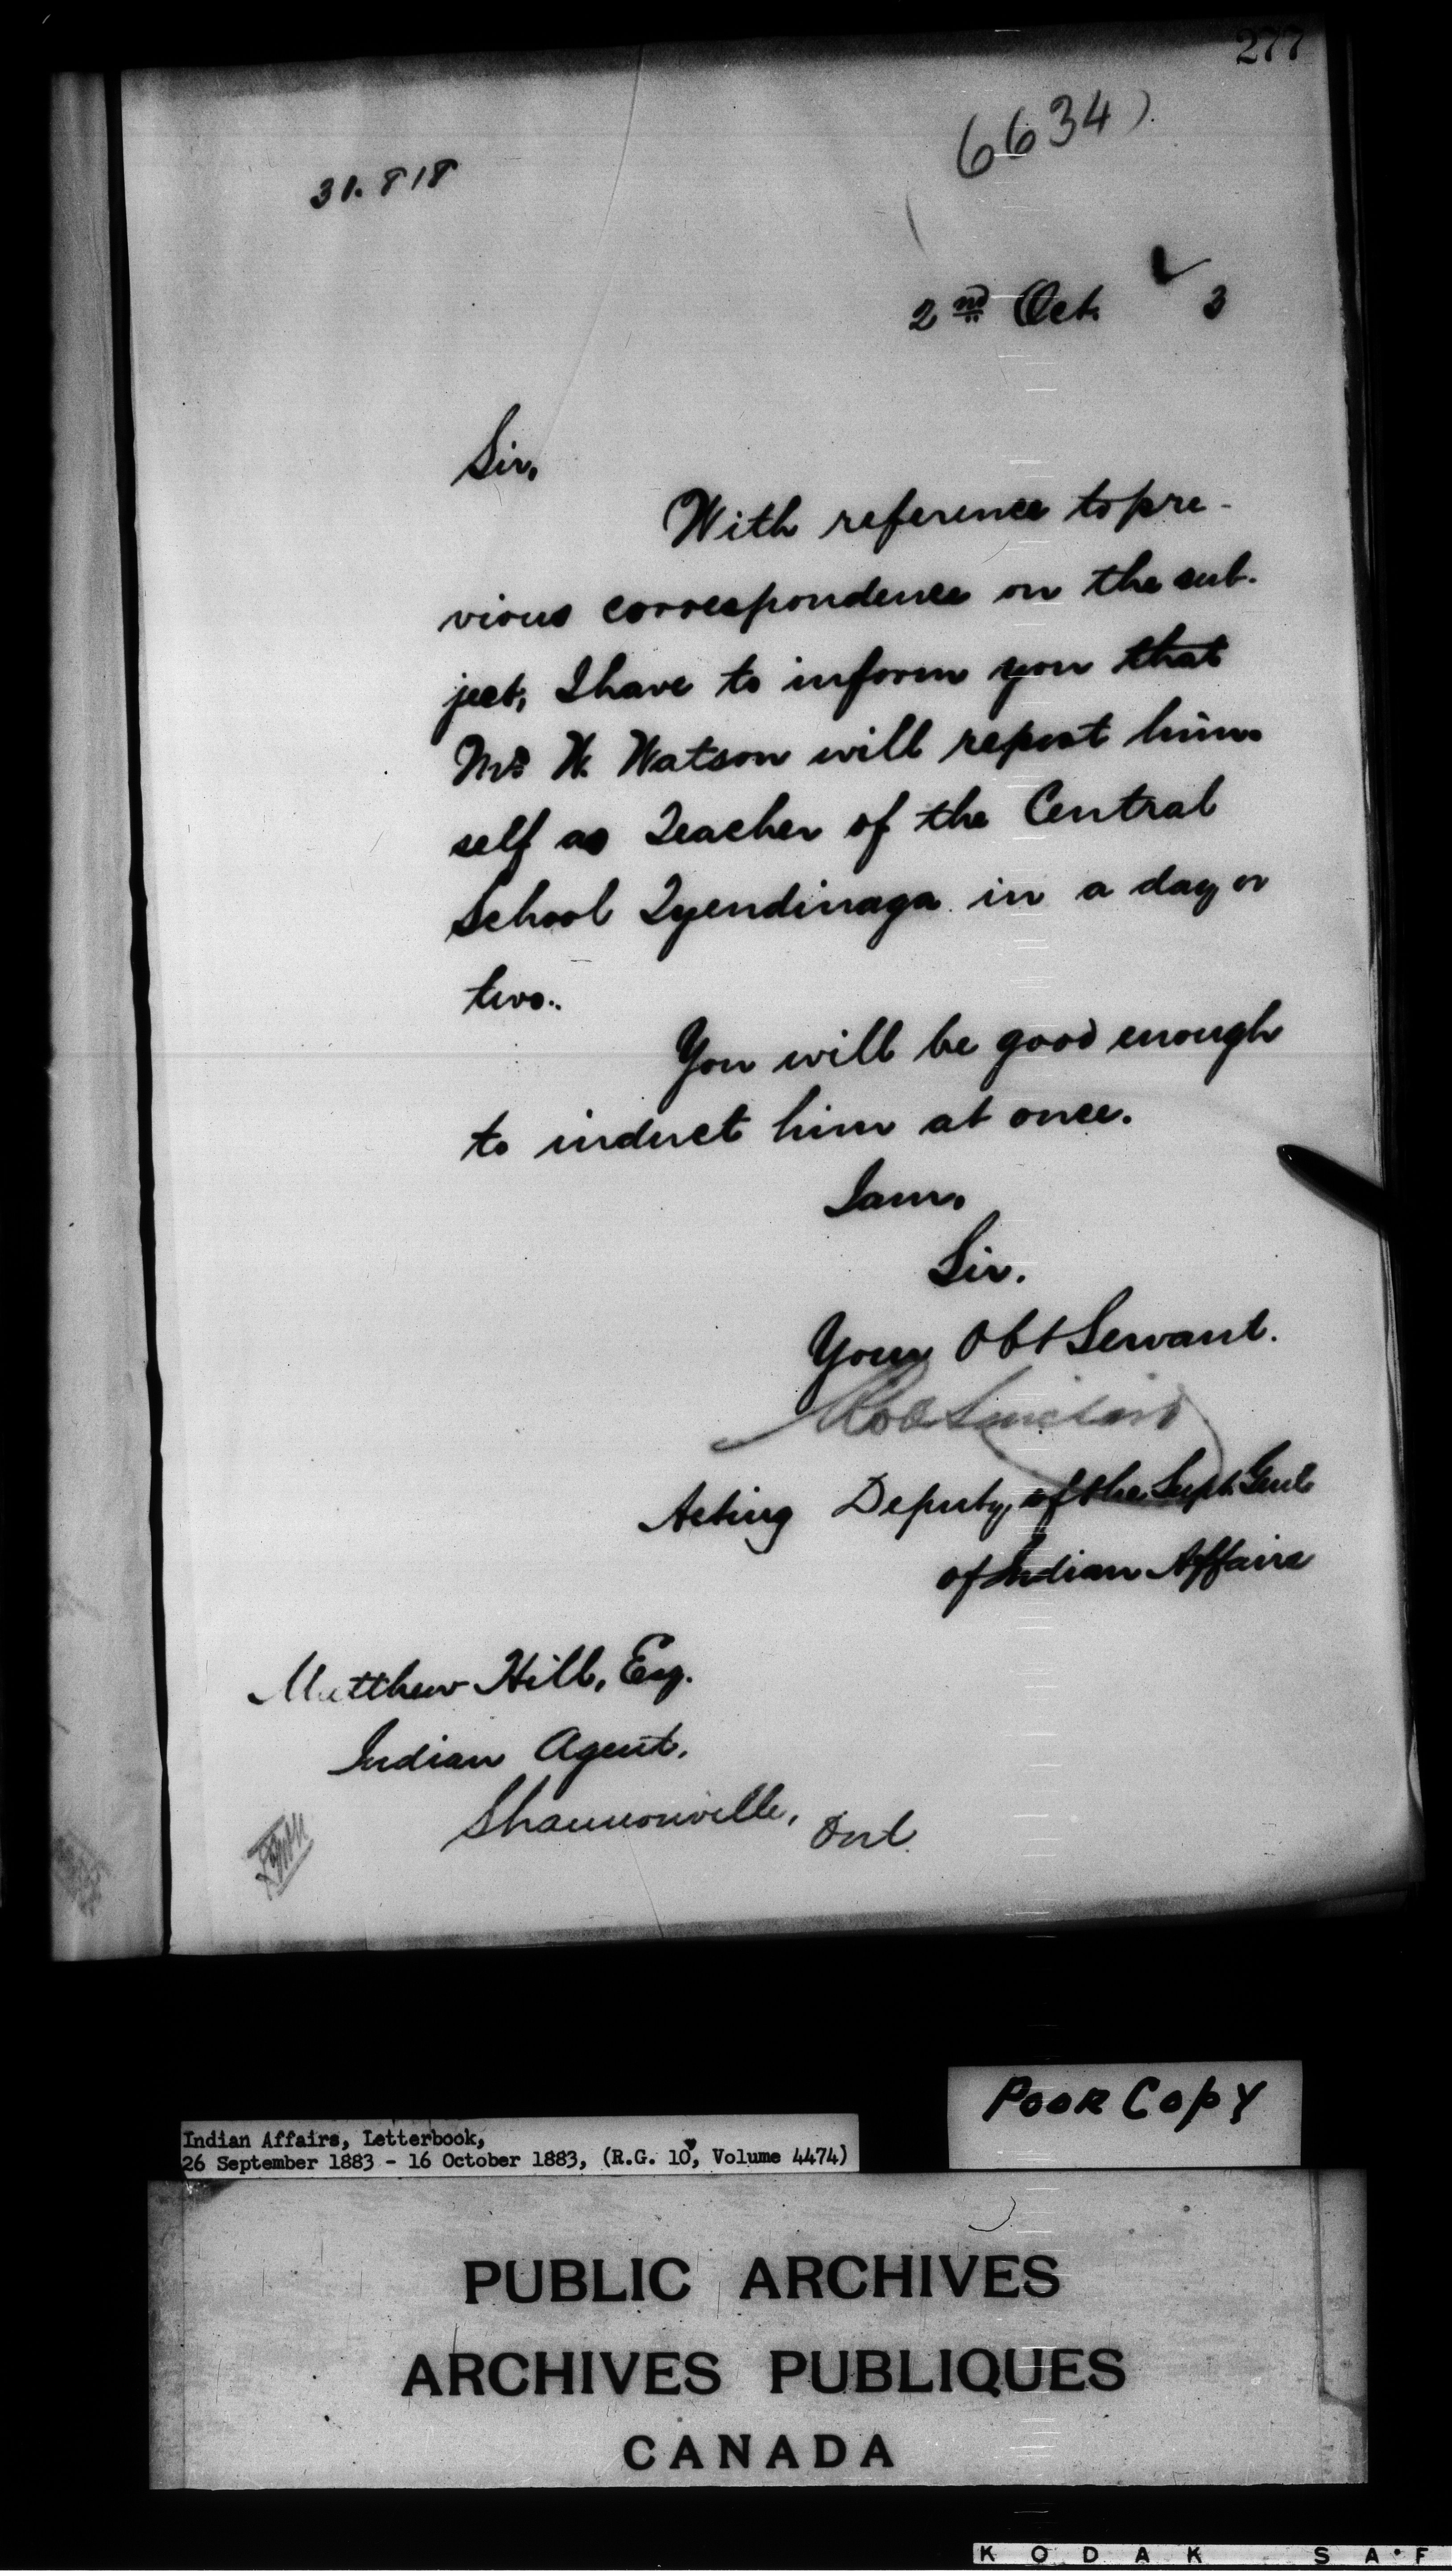 277
6634
31.818
2nd Oct. 3
Sir,
With reference to pre-
vious correspondence on the sub-
ject, I have to inform you that
Mr W. Watson will report him-
self as Teacher of the Central
School Tyendinaga in a day or
two.
You will be good enough
to induct him at once.
I am,
Sir.
Your Obt Servant.
Rob Sinclair
Acting Deputy of the Supt. Genl
of Indian Affairs
Matthew Hill, Esq.
Indian Agent.
Shannonville, Ont
POOR COPY
Indian Affairs, Letterbook,
26 September 1883 - 16 October 1883, (R.G. 10, Volume 4474)
PUBLIC ARCHIVES
ARCHIVES PUBLIQUES
CANADA
KODAK SA·F